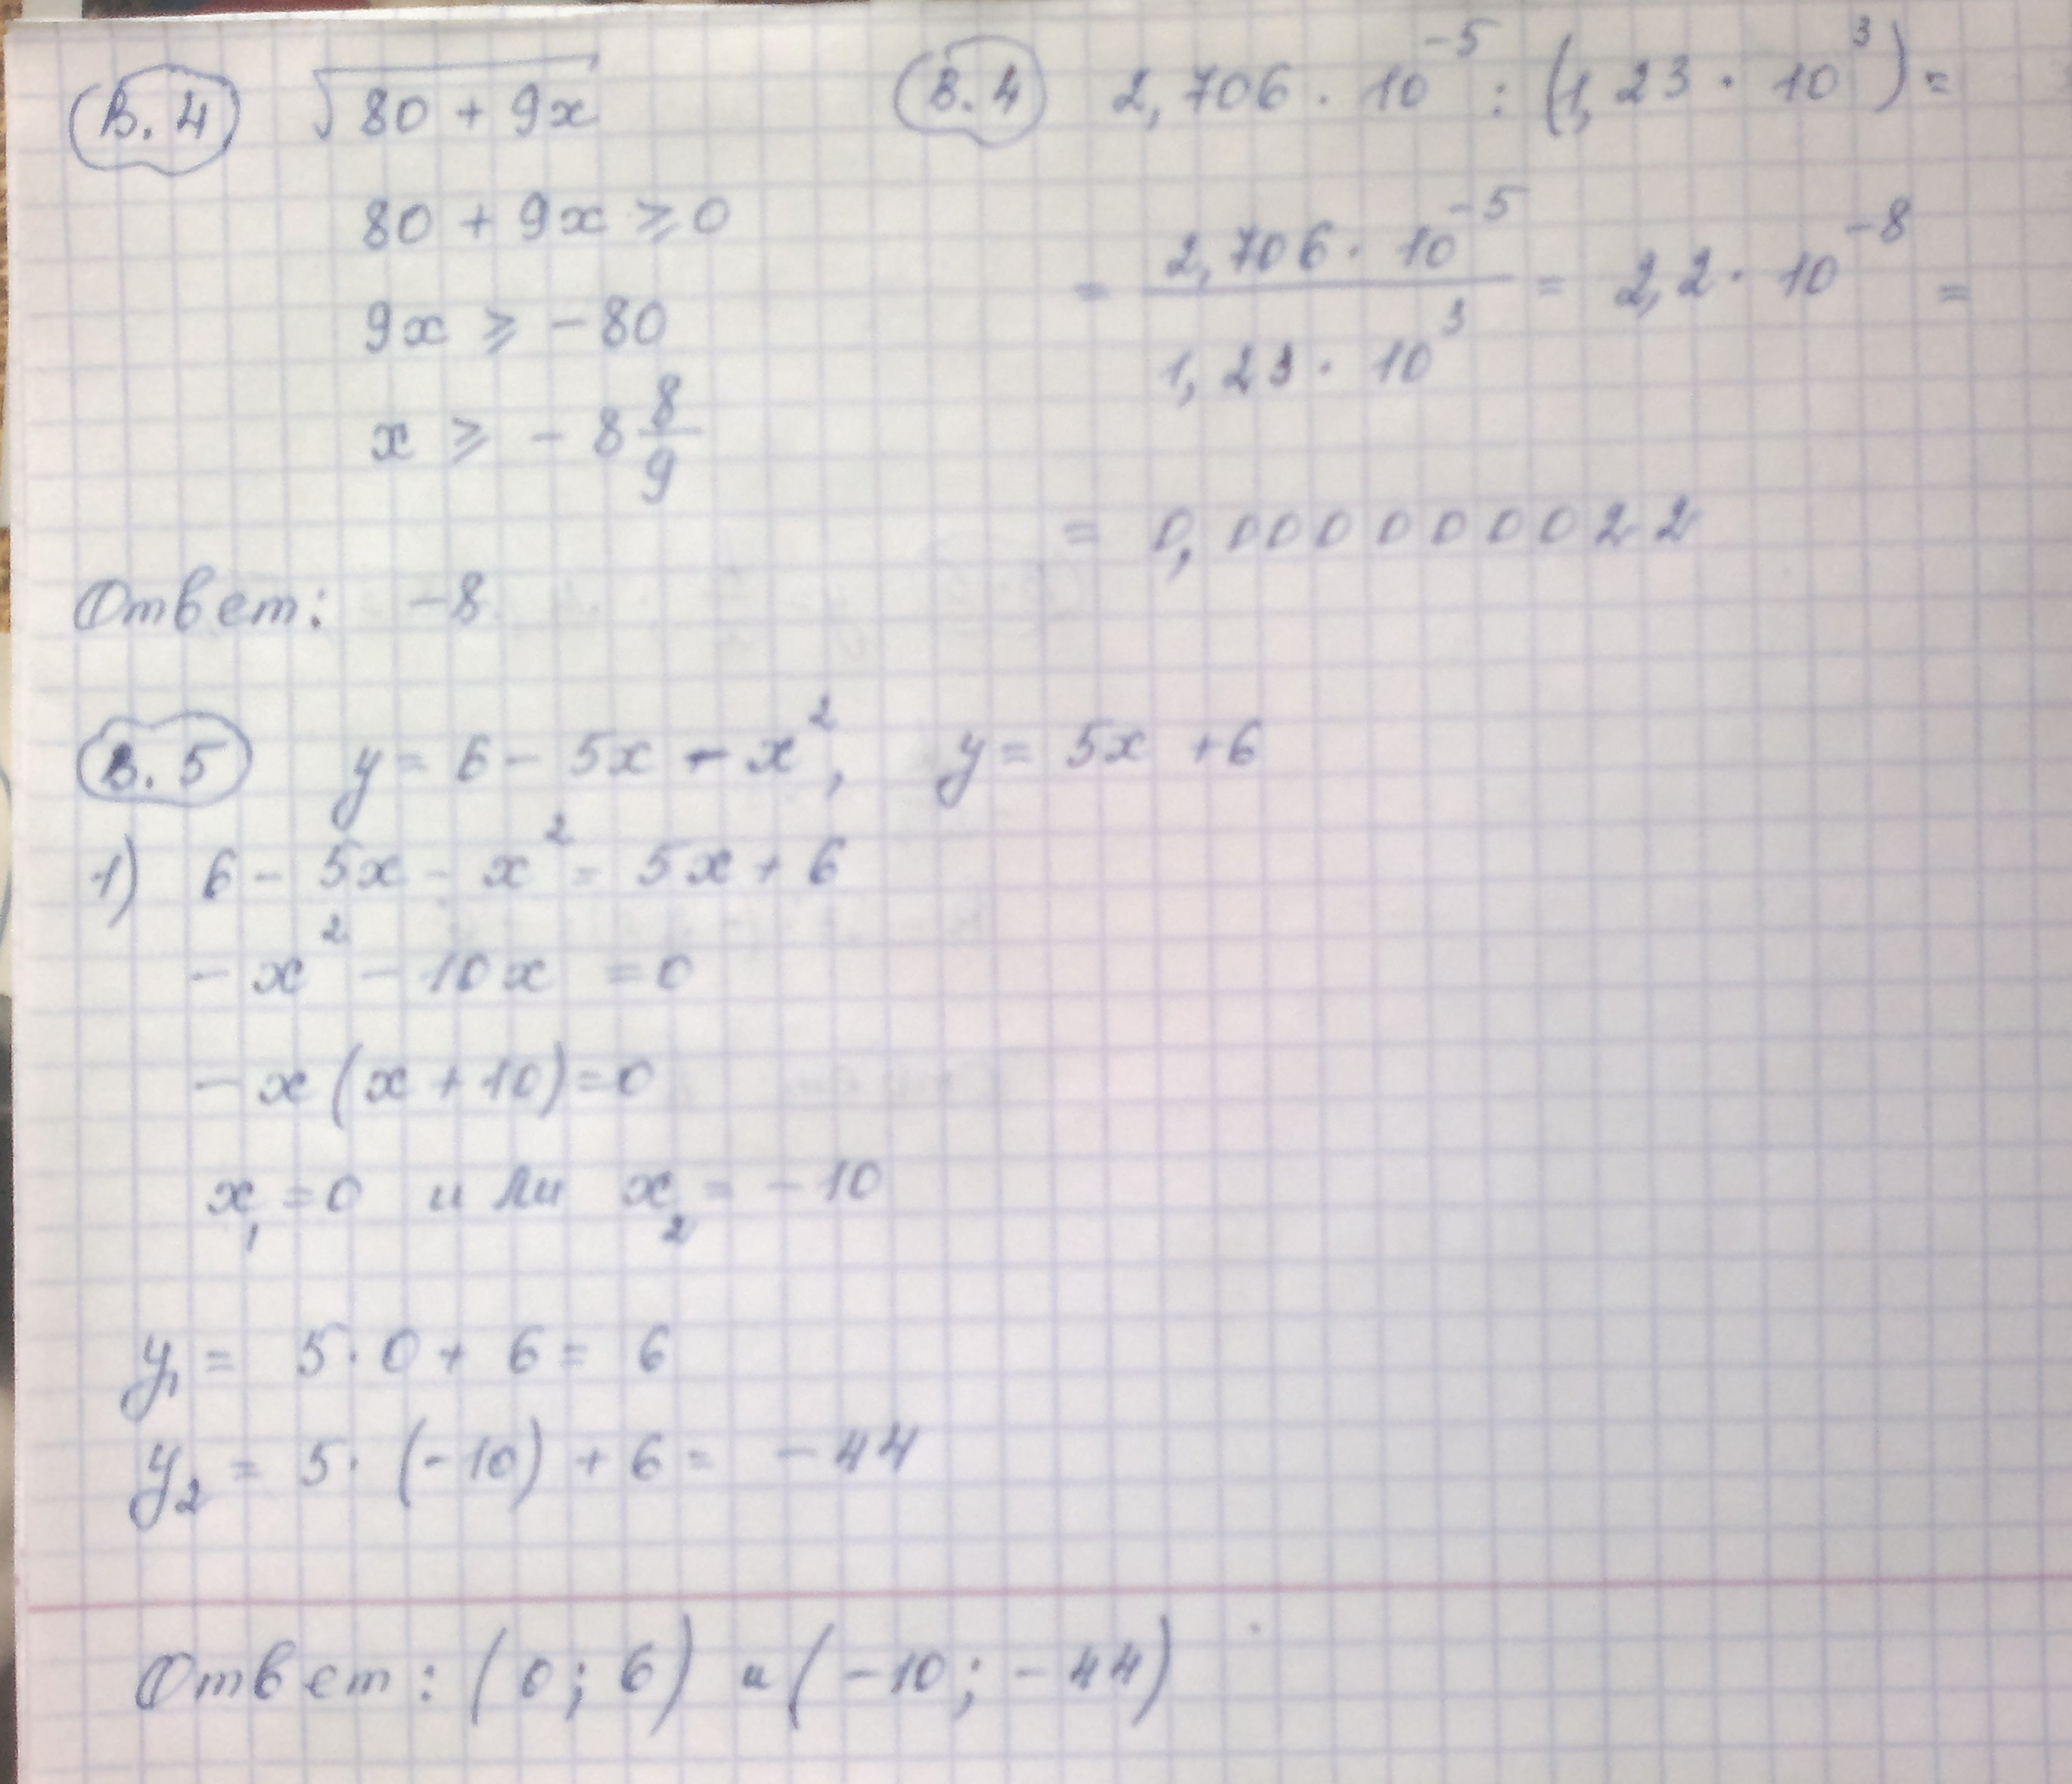 В.4 √80 + 9x
80 + 9x ⩾ 0
9x ⩾ -80
x ⩾ -8 8/9
Ответ: -8
В.4 2,706 · 10^-5 : (1,23 · 10^3) =
= 2,706 · 10^-5 / 1,23 · 10^3 = 2,2 · 10^-8 =
= 0,000000022
В.5 y = 6 - 5x - x², y = 5x + 6
1) 6 - 5x - x² = 5x + 6
-x² - 10x = 0
-x(x + 10) = 0
x₁ = 0 или x₂ = -10
y₁ = 5 · 0 + 6 = 6
y₂ = 5 · (-10) + 6 = -44
Ответ: (0; 6) и (-10; -44)